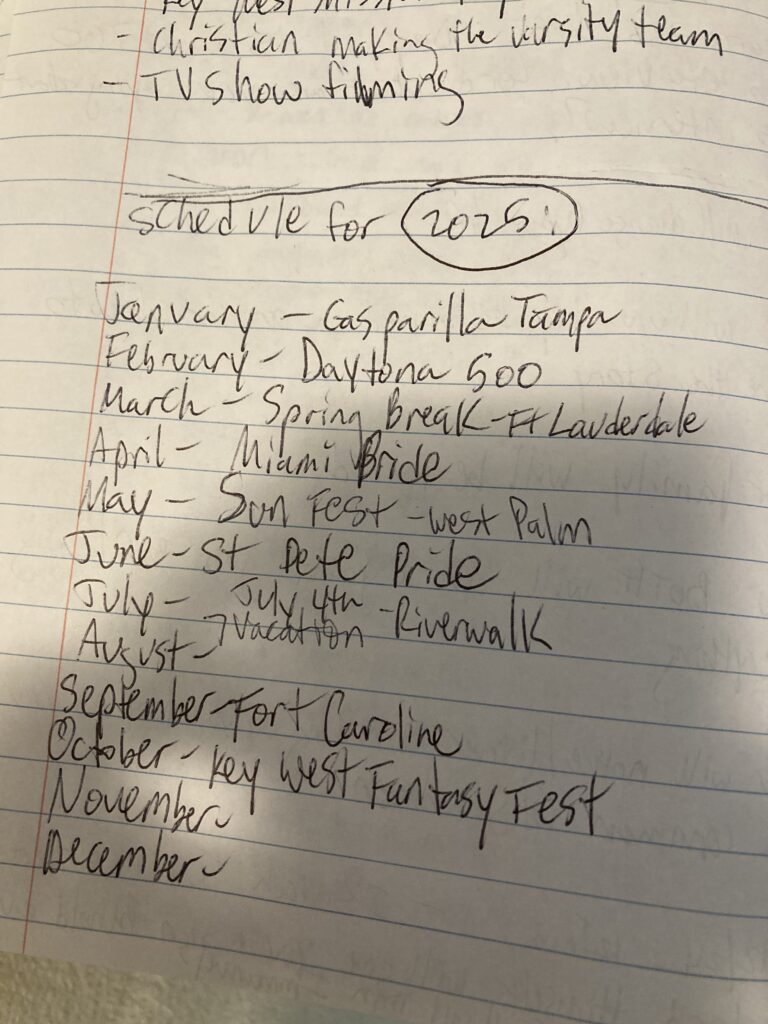 Key West Mission
- Christian making the varsity team
- TV Show filming
Schedule for 2025:
January - Gasparilla Tampa
February - Daytona 500
March - Spring Break - Ft Lauderdale
April - Miami Bride
May - Sun Fest - West Palm
June - St Pete Pride
July - July 4th - Riverwalk
August - 7 Vacation
September - Fort Caroline
October - Key West Fantasy Fest
November -
December -